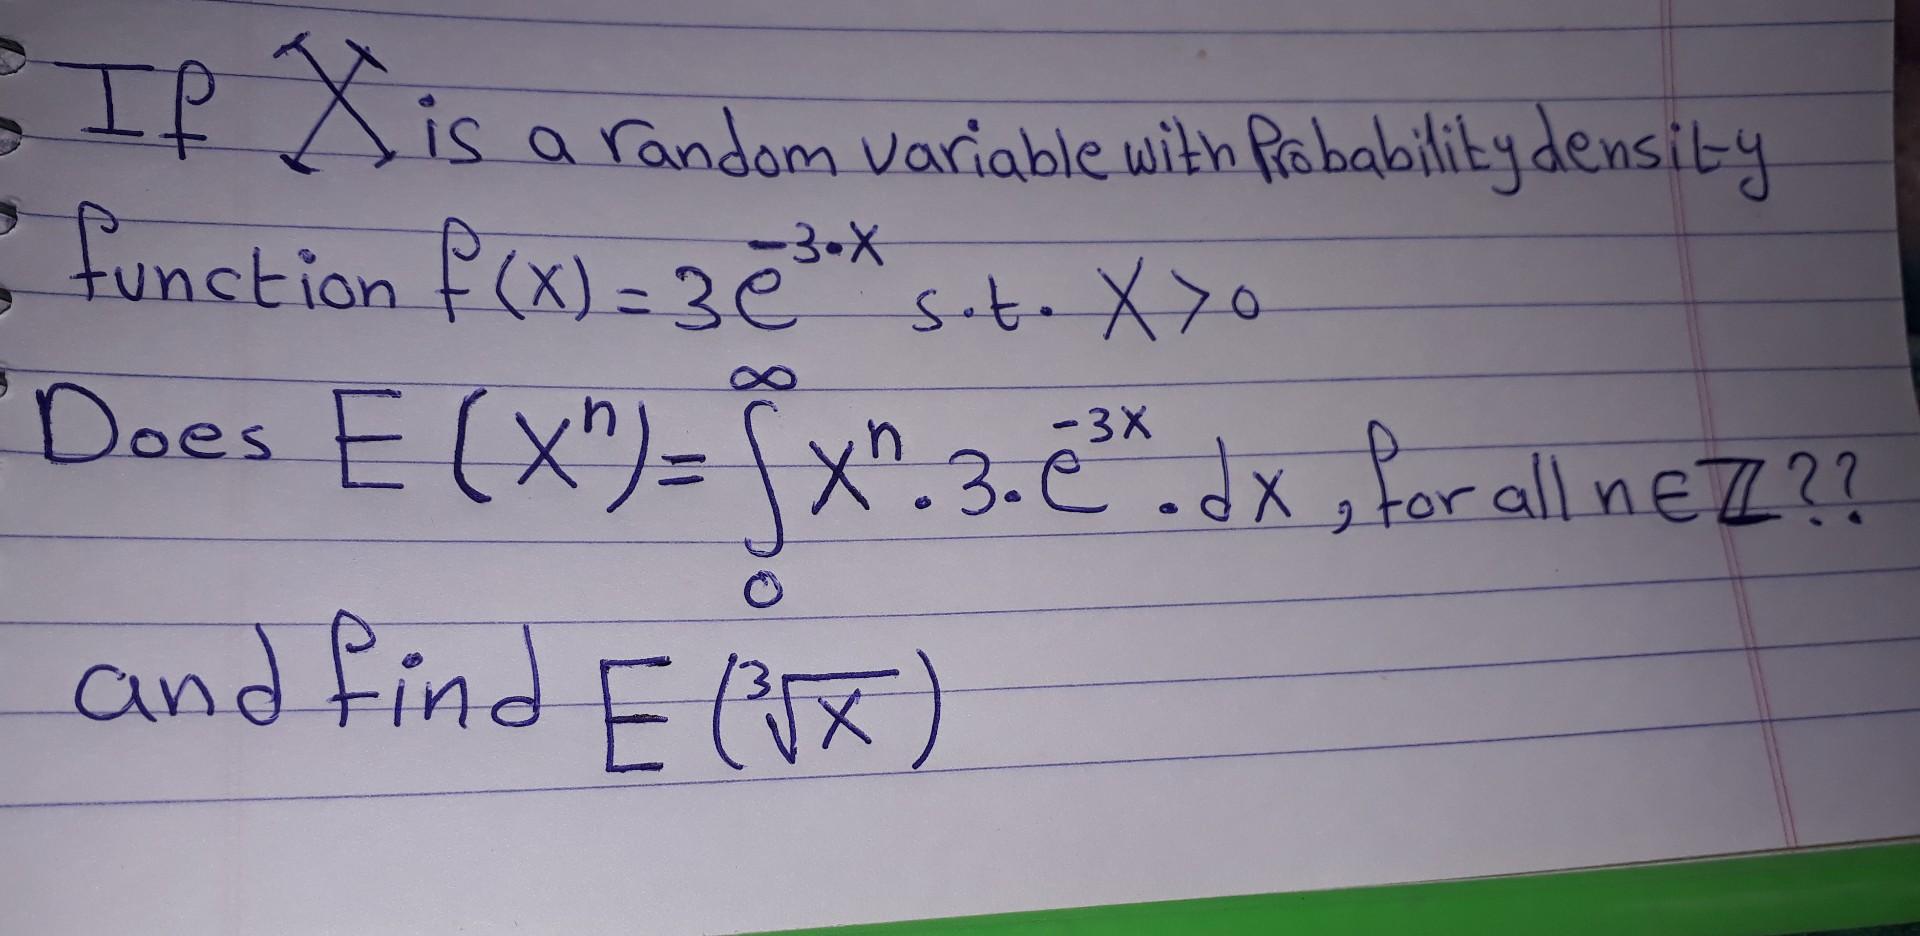 If X is a random variable with Probability density
function f(x) = 3e^{-3•x} s.t. X>0
Does E(X^n) = ∫_0^∞ x^n . 3 . e^{-3x} . dx , for all n∈ℤ??
and find E(∛x)